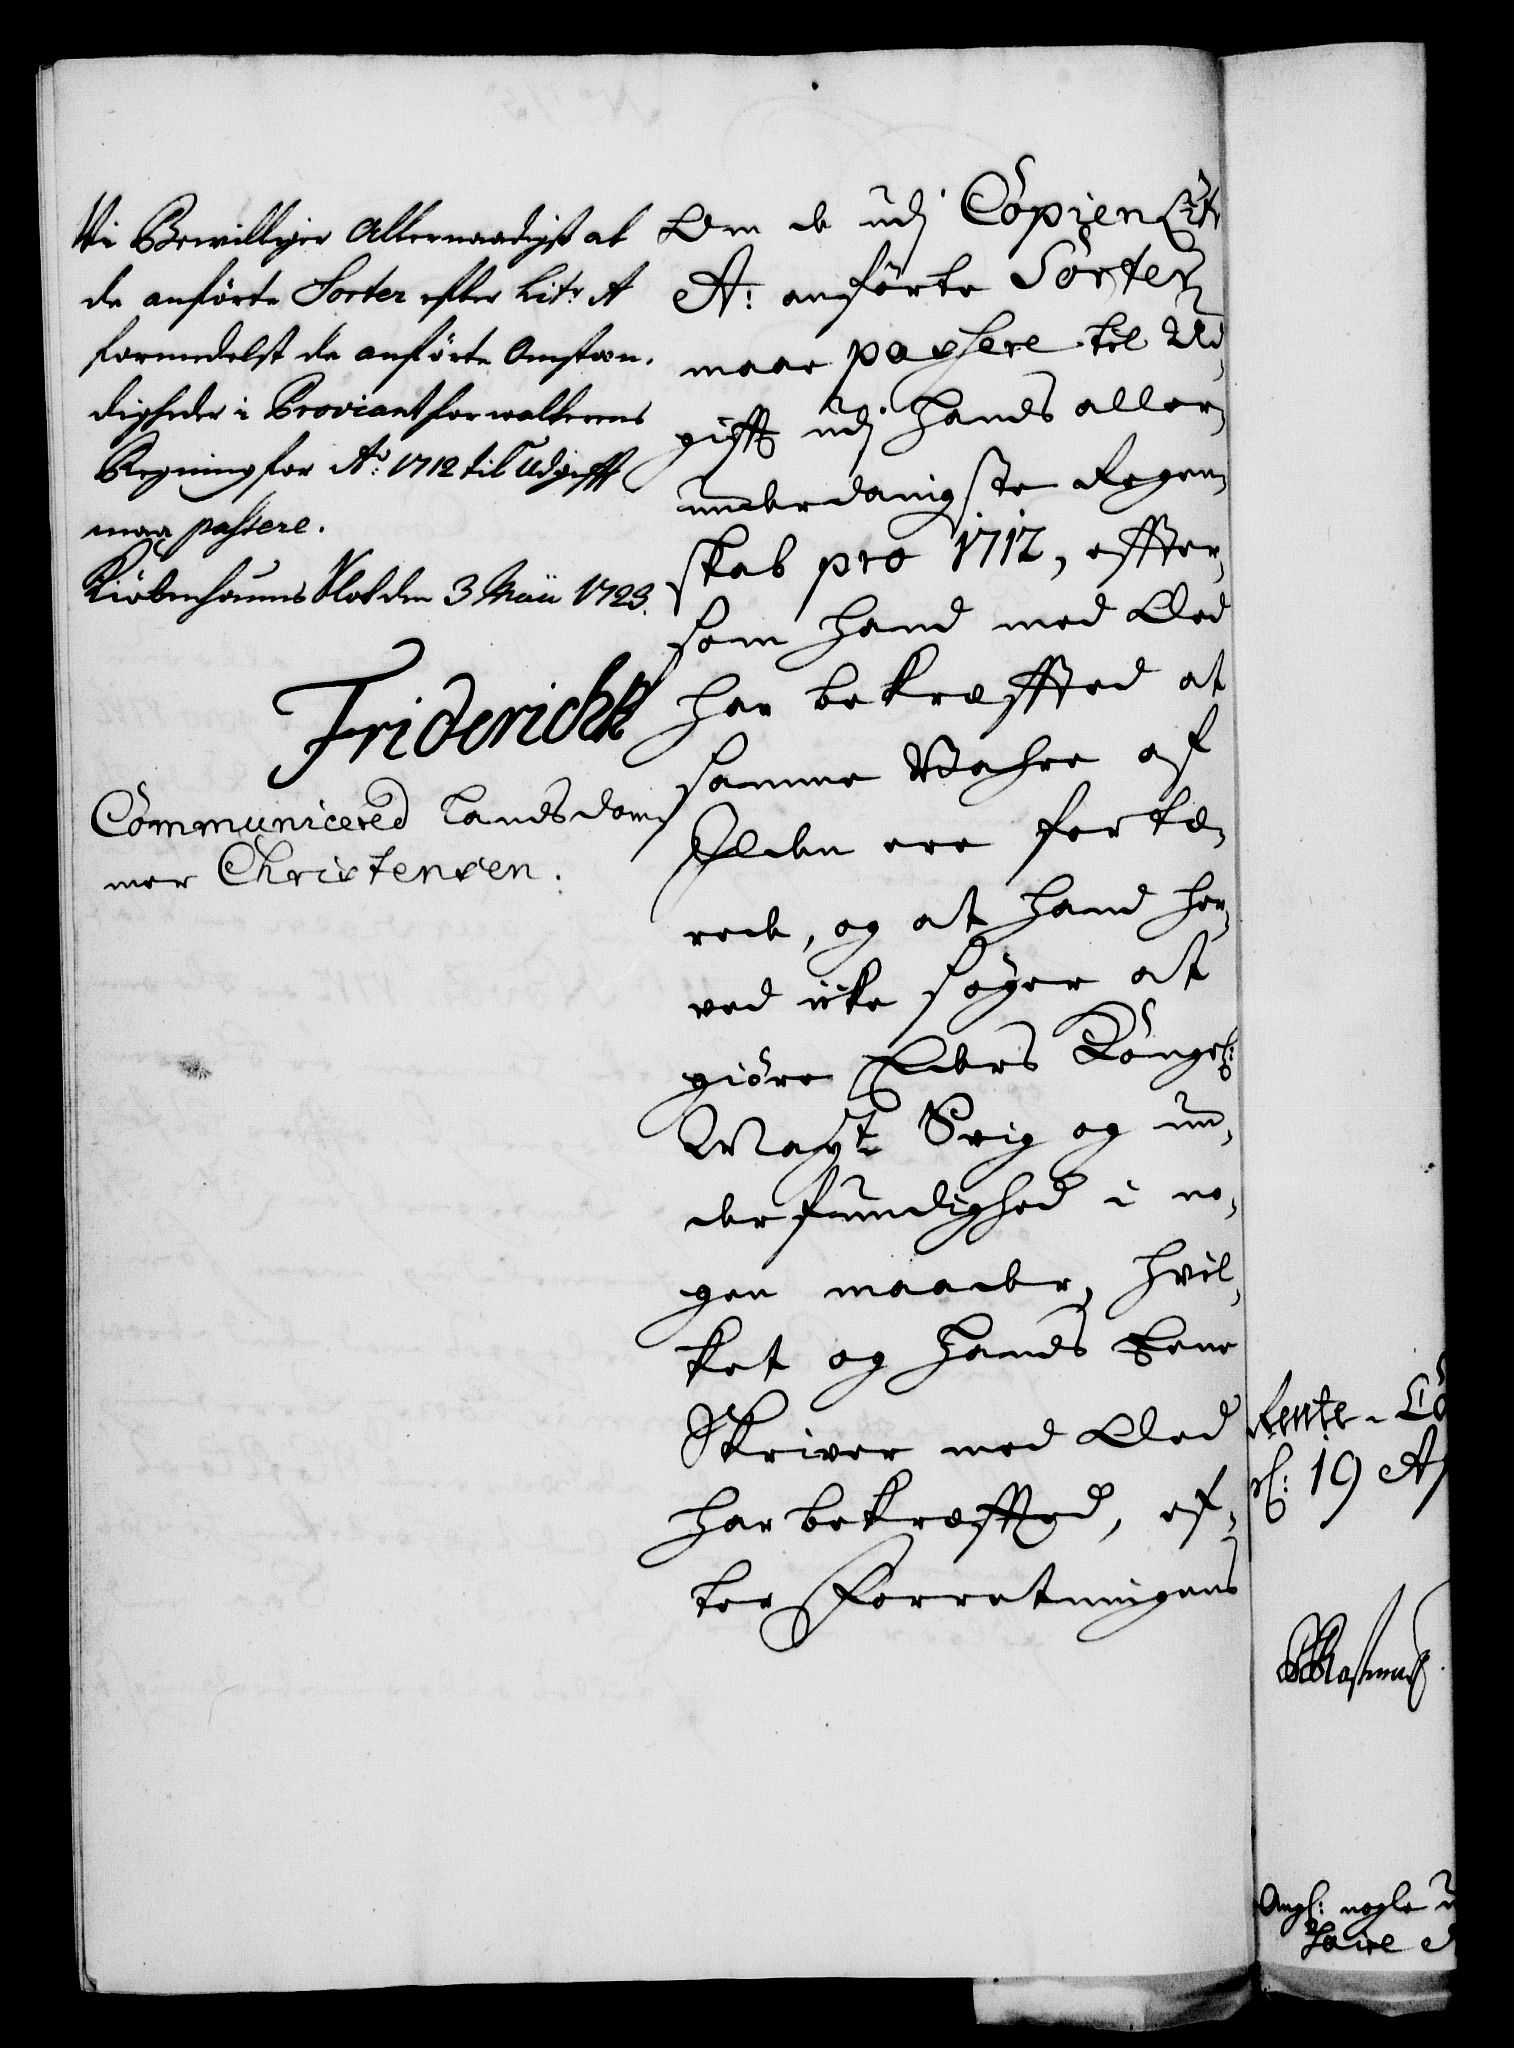 Vi Bewilliger Allernaadigst at
de anförte Sorter efter Litr A
formedelst de anförte Omstæn,
digheder i Proviantforwalterens
Regning for Aō: 1712 til Udgifft
maa passere.
Kiöbenhauns Slot den 3 Maii 1723.
Friderich R
Communicered Landsdom,
mer Christensen.
Om de udj Copien Litr
A: anförte Sorter
maae passere til Ud,
gifft udj Hands aller,
underdanigste Regen,
skab pro 1712, effter,
som Hand med Eed
har bekræffted at
samme Wahre af
Ilden ere fortæ,
rede, og at Hand her,
ved icke søger at
giöre Eders Kongel:
Mayt Svig og un,
derfundighed i no,
gen maader, hvil,
ket og Hands Eene
Skriver med Eed
har bekræffted, ef,
ter Forretningens
Rente-Ca
d: 19 Ap
Angl: nogle